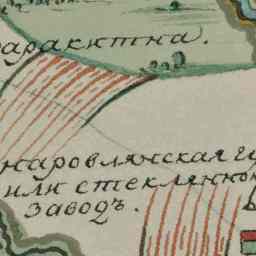 аракитна.
наровлянская гу
или стеклянно
заводъ.